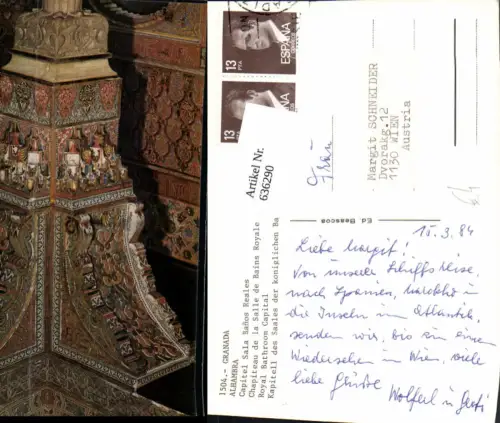 13
PTA
ESPAÑA
13
PTA
Artikel Nr.
636290
Frau
Margit SCHNEIDER
Dvorakg.12
1130 WIEN
Austria
Ed. Beascoa
1504.- GRANADA
ALHAMBRA
Capitel Sala Baños Reales
Chapiteau de la Salle de Bains Royale
Royal Bathroom Capital
Kapitell des Saales der koniglichen Ba
15.3.84
Liebe Margit!
Von unserer Schiffsreise,
nach Spanien, Marokko u
die Inseln im Atlantik,
senden wir, bis zu einem
Wiedersehen in Wien, viele
liebe Grüße
Wolferl u